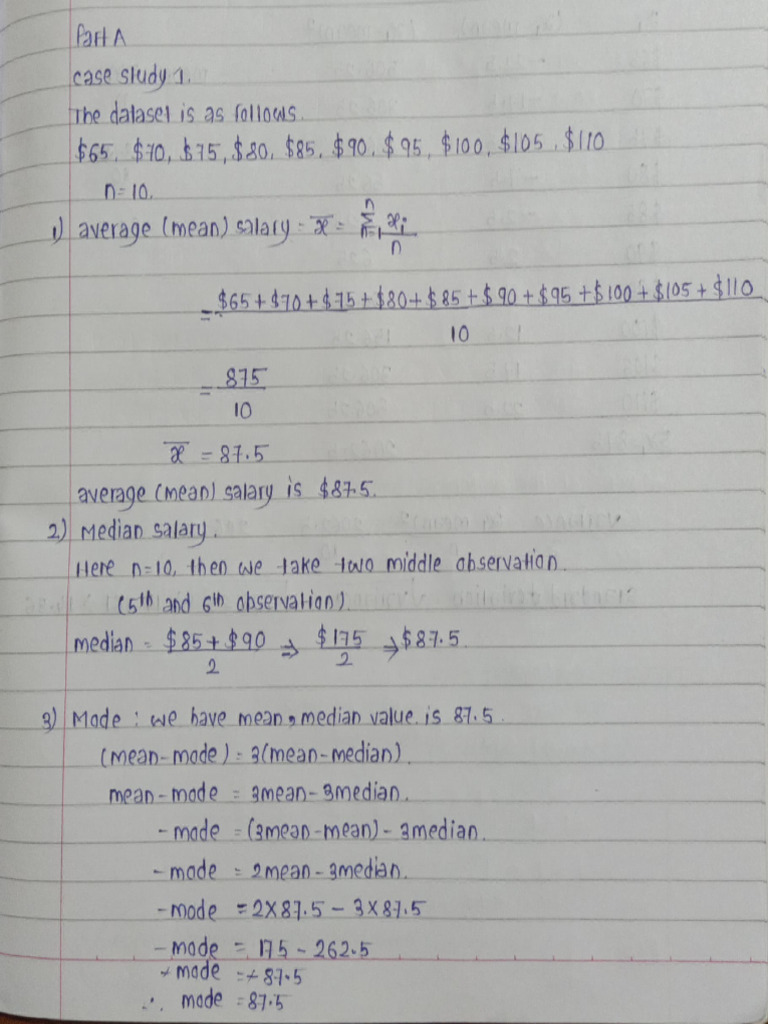 Part A
case study 1.
The dataset is as follows.
$65, $70, $75, $80, $85, $90, $95, $100, $105, $110
n=10.
1) average (mean) salary = x̄ = Σ_{n=1}^{n} xᵢ/n
= $65+$70+$75+$80+$85+$90+$95+$100+$105+$110
10
= 875
10
x̄ = 87.5
average (mean) salary is $87.5.
2) Median salary.
Here n=10, then we take two middle observation.
(5th and 6th observation).
median = $85+$90/2 ⇒ $175/2 ⇒ $87.5.
3) Mode : we have mean, median value is 87.5.
(mean-mode) = 3(mean-median).
mean-mode = 3mean-3median.
-mode = (3mean-mean)-3median.
-mode = 2mean-3median.
-mode = 2×87.5-3×87.5
-mode = 175-262.5
-mode = -87.5
∴ mode = 87.5